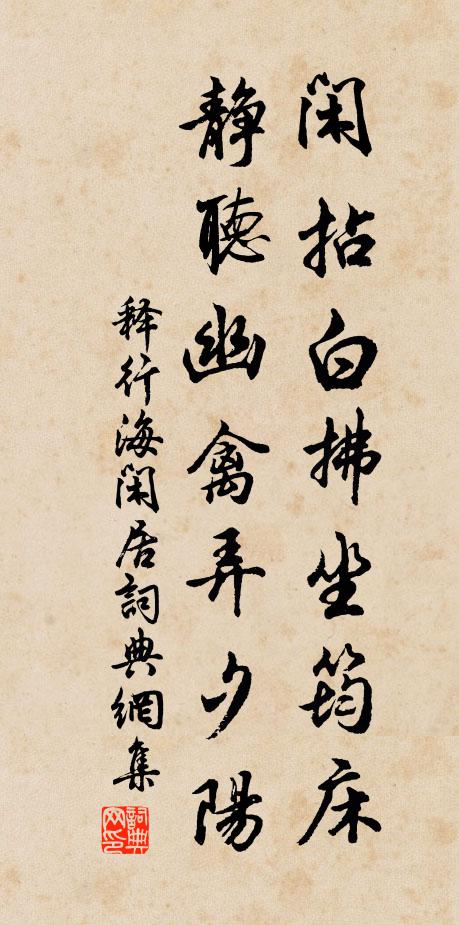 閑拈白拂坐筠床
静聽幽禽弄夕陽
释行海閑居詞典網集
詞典網印